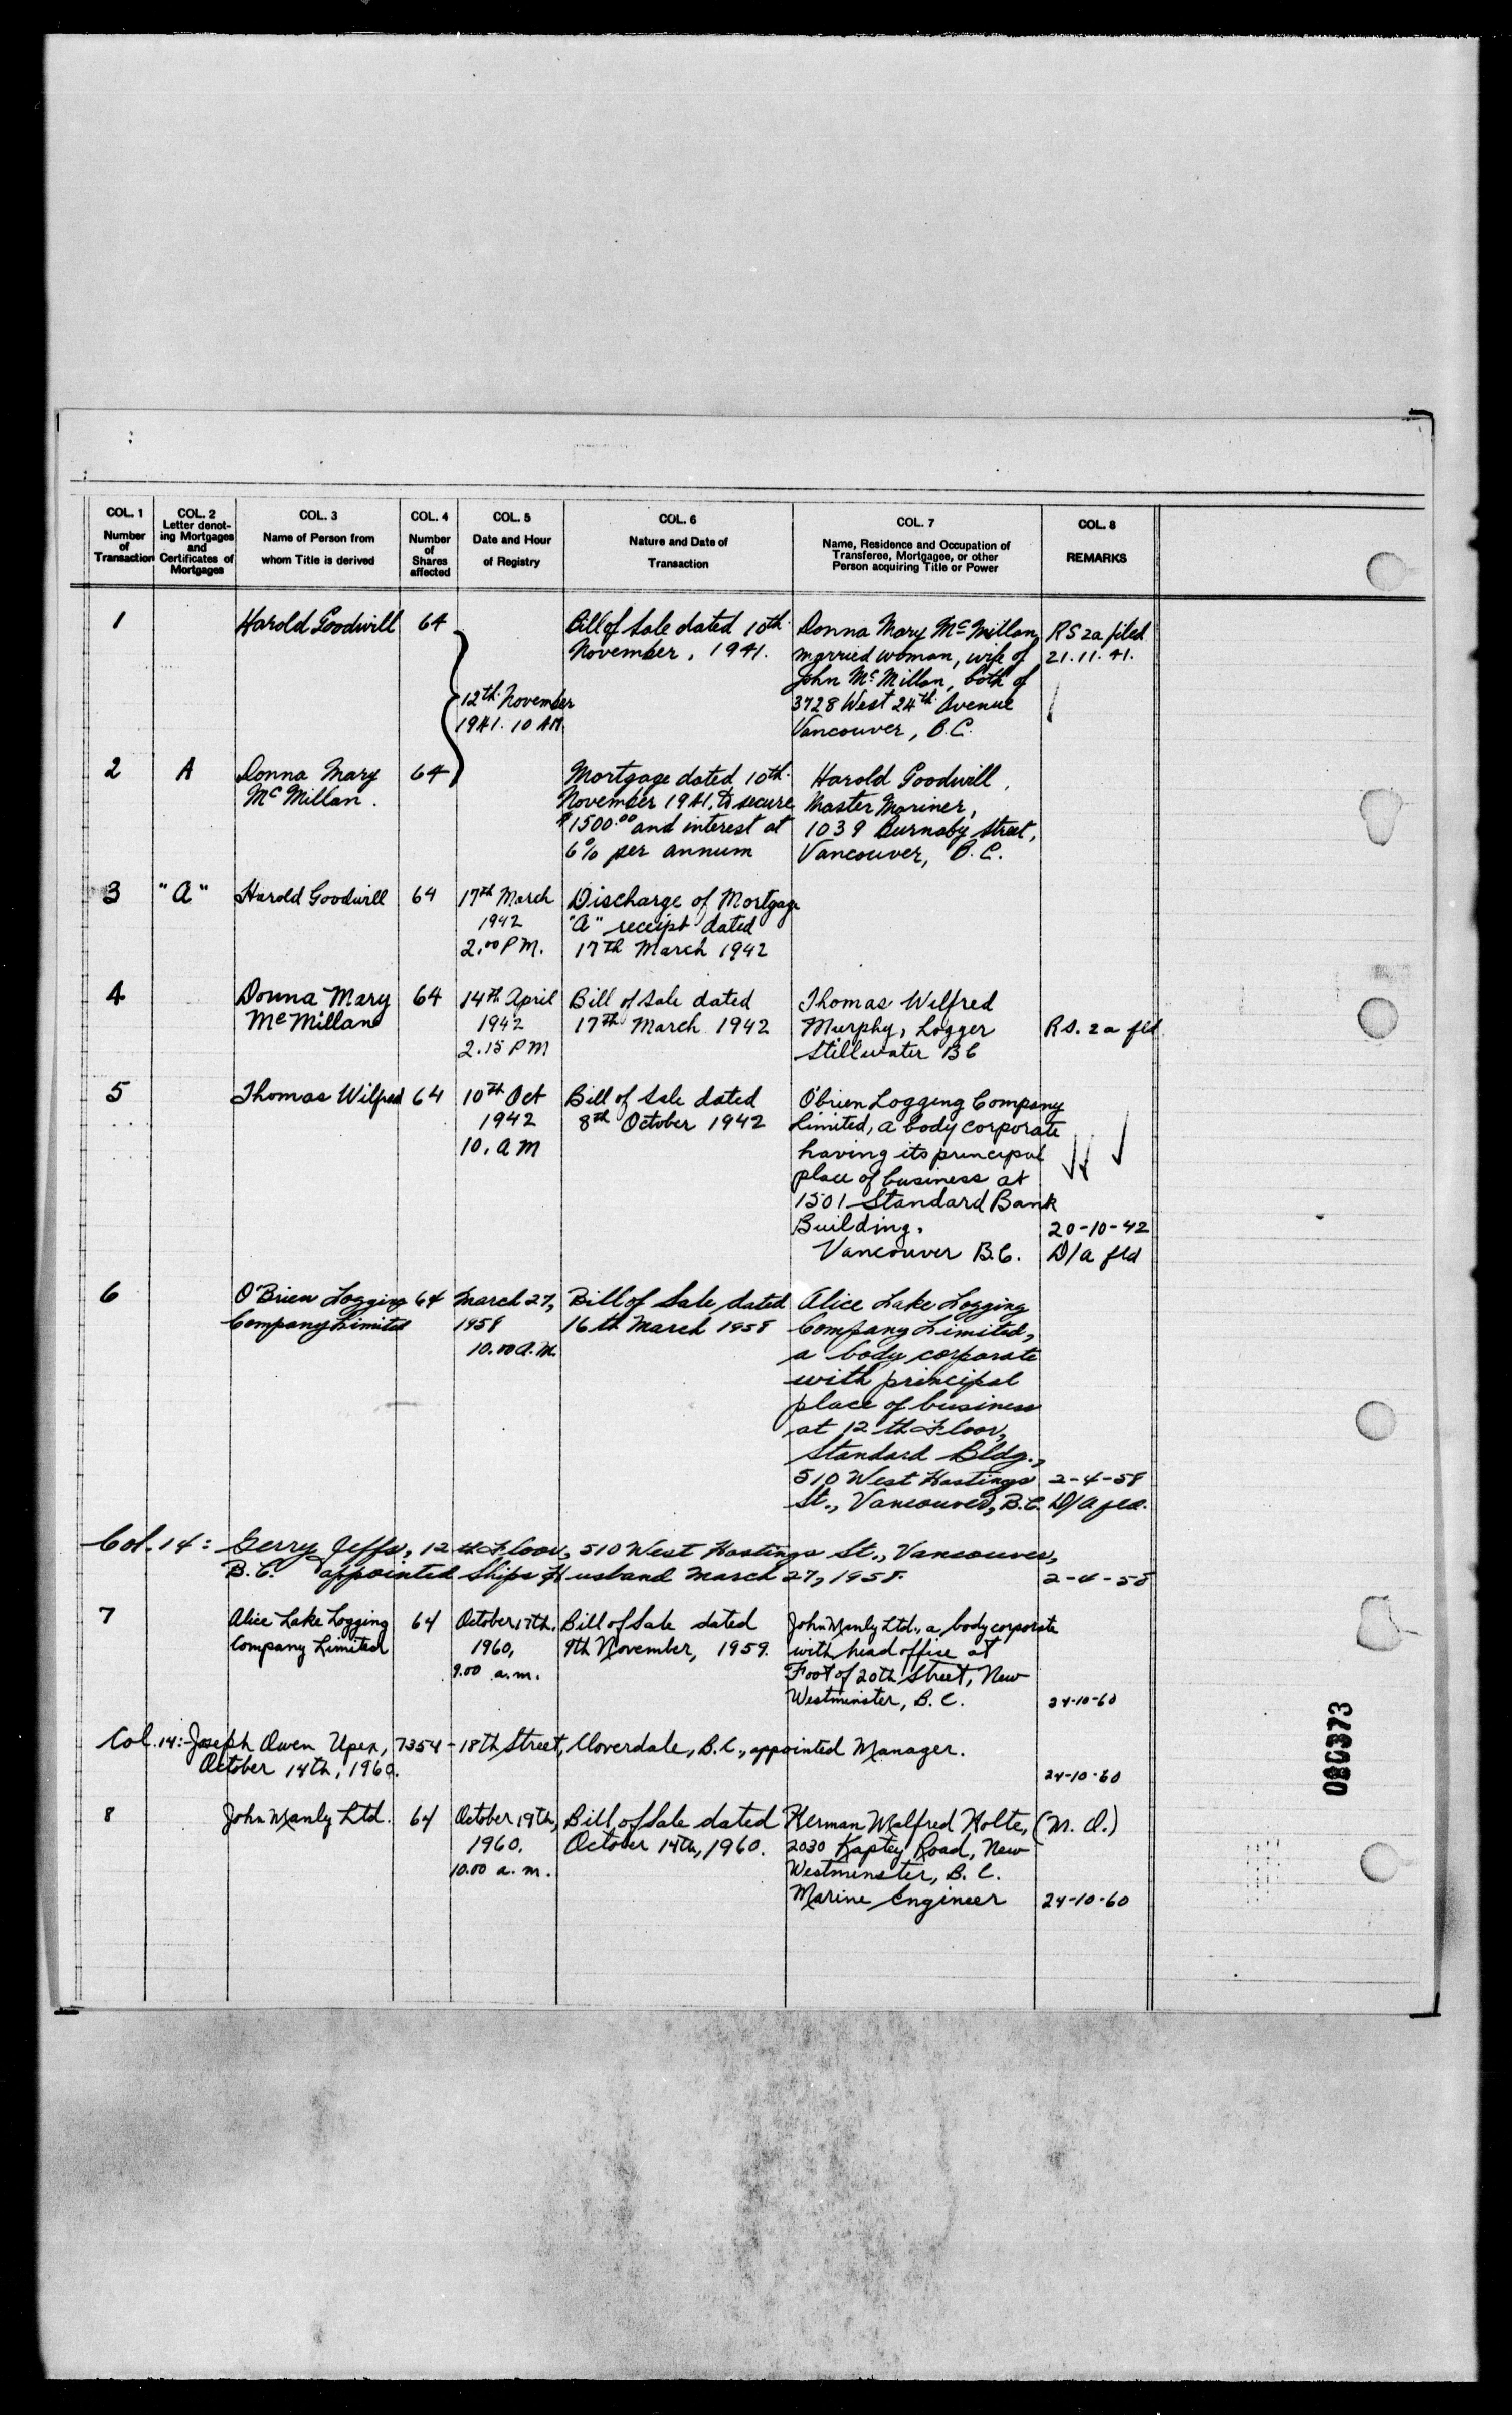 COL. 1 Number of Transaction
COL. 2 Letter denoting Mortgages and Certificates of Mortgages
COL. 3 Name of Person from whom Title is derived
COL. 4 Number of Shares affected
COL. 5 Date and Hour of Registry
COL. 6 Nature and Date of Transaction
COL. 7 Name, Residence and Occupation of Transferee, Mortgagee, or other Person acquiring Title or Power
COL. 8 REMARKS
1
Harold Goodwill
64
12th November
1941. 10 AM
Bill of Sale dated 10th
November, 1941.
Donna Mary McMillan,
married woman, wife of
John McMillan, both of
3728 West 24th Avenue
Vancouver, B.C.
RS 2a filed
21.11.41.
2
A
Donna Mary
McMillan.
64
Mortgage dated 10th
November 1941, to secure
$1500.00 and interest at
6% per annum
Harold Goodwill,
Master Mariner,
1039 Burnaby Street,
Vancouver, B.C.
3
"A"
Harold Goodwill
64
17th March
1942
2.00 PM.
Discharge of Mortgage
"A" receipt dated
17th March 1942
4
Donna Mary
McMillan
64
14th April
1942
2.15 PM
Bill of Sale dated
17th March 1942
Thomas Wilfred
Murphy, Logger
Stillwater BC
RS. 2a fld
5
Thomas Wilfred
64
10th Oct
1942
10. AM
Bill of Sale dated
8th October 1942
O'Brien Logging Company
Limited, a body corporate
having its principal
place of business at
1501 Standard Bank
Building,
Vancouver B.C.
20-10-42
D/a fld
6
O'Brien Logging
Company Limited
64
March 27,
1958
10.00 A.M.
Bill of Sale dated
16th March 1958
Alice Lake Logging
Company Limited,
a body corporate
with principal
place of business
at 12th Floor,
Standard Bldg.,
510 West Hastings
St., Vancouver, B.C.
2-4-58
D/A fld.
Col. 14: Gerry Jeffs, 12th Floor, 510 West Hastings St., Vancouver,
B.C. appointed Ships Husband March 27, 1958.
2-4-58
7
Alice Lake Logging
Company Limited
64
October 17th,
1960,
9.00 a.m.
Bill of Sale dated
9th November, 1959.
John Manly Ltd., a body corporate
with head office at
Foot of 20th Street, New
Westminster, B.C.
24-10-60
Col. 14: Joseph Owen Upex, 7354-18th Street, Cloverdale, B.C., appointed Manager.
October 14th, 1960.
24-10-60
8
John Manly Ltd.
64
October 19th,
1960.
10.00 a.m.
Bill of Sale dated
October 14th, 1960.
Herman Malfred Holte,
2030 Kaptey Road, New
Westminster, B.C.
Marine Engineer
(M.O.)
24-10-60
080373